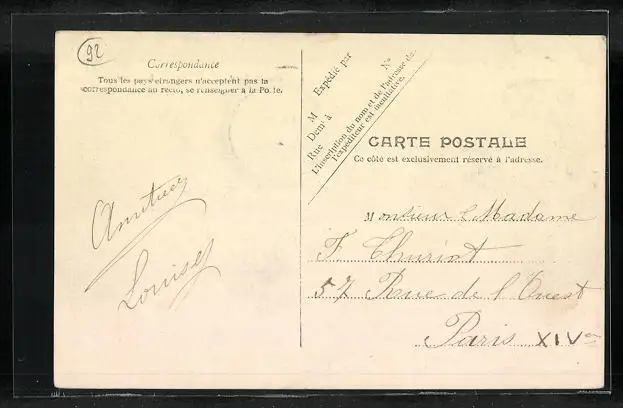 92
Correspondance
Tous les pays étrangers n'acceptent pas la
correspondance au recto, se renseigner à la Poste.
Amitiés
Louise
Expédié par
M
Demt à
Rue
No
L'inscription du nom et de l'adresse de
l'expéditeur est facultative.
CARTE POSTALE
Ce côté est exclusivement réservé à l'adresse.
Monsieur & Madame
F. Thuriot
57 Rue de l'Ouest
Paris XIVe